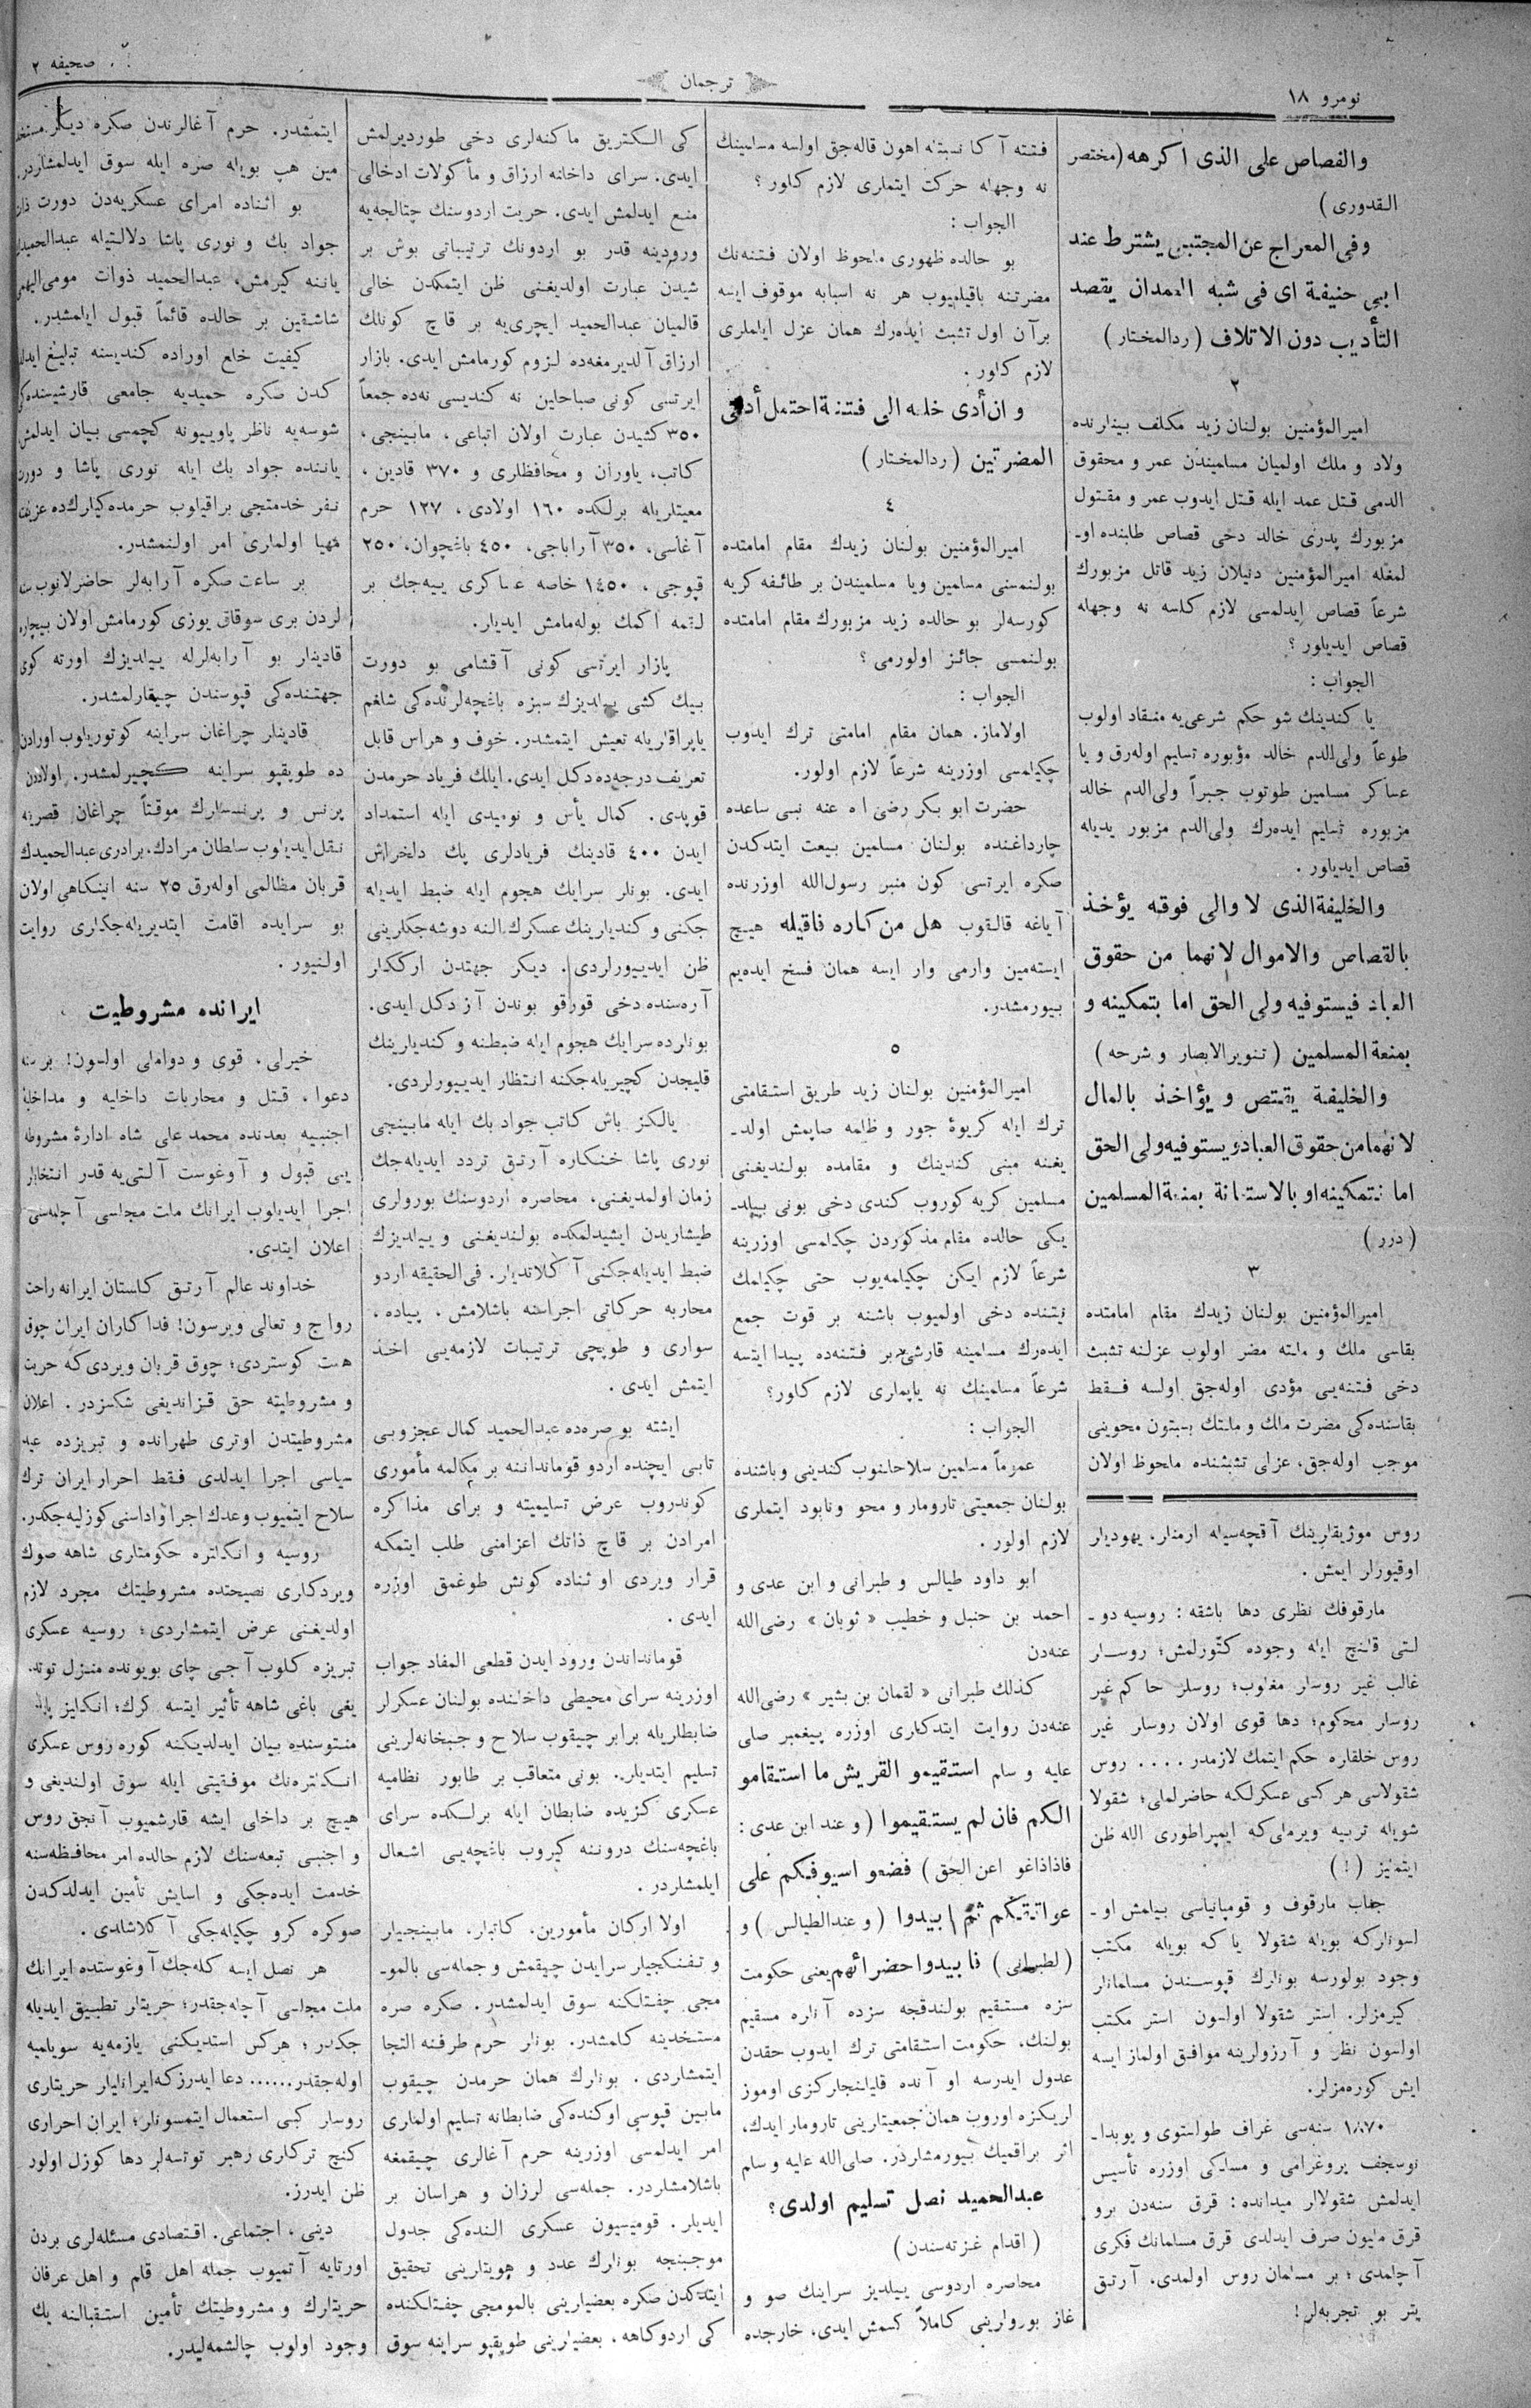 نومرو ١٨
ترجمان
صحیفه ٢
والقصاص علی الذی اکرهه (مختصر
القدوری)
وفی المعراج عن المجتبی یشترط عند
ابی حنیفة ای فی شبه العمدان یقصد
التأدیب دون الاتلاف (ردالمختار)
٢
امیرالمؤمنین بولنان زید مکلف بینلرنده
ولاد و ملك اولمیان مسلمیندن عمر و محقوق
الدمی قتل عمد ایله قتل ایدوب عمر و مقتول
مزبورك پدری خالد دخی قصاص طلبنده او-
لمغله امیرالمؤمنین دنیلان زید قاتل مزبورك
شرعاً قصاص ایدلمسی لازم کلسه نه وجهله
قصاص ایدیلور؟
الجواب:
یا کندینك شو حکم شرعی‌یه منقاد اولوب
طوعاً ولی‌الدم خالد مزبوره تسلیم اوله‌رق و یا
عساکر مسلمین طوتوب جبراً ولی‌الدم خالد
مزبوره تسلیم ایده‌رك ولی‌الدم مزبور یدیله
قصاص ایدیلور.
والخلیفة الذی لا والی فوقه یؤخذ
بالقصاص والاموال لانهما من حقوق
العباد فیستوفیه ولی الحق اما بتمکینه و
بمنعة المسلمین (تنویرالابصار و شرحه)
والخلیفة یقتص و یؤاخذ بالمال
لانهما من حقوق العباد و یستوفیه ولی الحق
اما بتمکینه او بالاستعانة بمنعة المسلمین
(درر)
٣
امیرالمؤمنین بولنان زیدك مقام امامتده
بقاسی ملك و ملته مضر اولوب عزلنه تشبث
دخی فتنه‌یی مؤدی اوله‌جق اولسه فقط
بقاسنده‌کی مضرت ملك و ملتك بسبتون محوینی
موجب اوله‌جق، عزلی تشبثنده ملحوظ اولان
روس موژیقلرینك آقچه‌سیله ارمنلر، یهودیلر
اوقیورلر ایمش.
مارقوفك نظری دها باشقه: روسیه دو-
لتی قلنچ ایله وجوده کتورلمش؛ روسلر
غالب غیر روسلر مغلوب؛ روسلر حاکم غیر
روسلر محکوم؛ دها قوی اولان روسلر غیر
روس خلقلره حکم ایتمك لازمدر.... روس
شقولاسی هر کسی عسکرلکه حاضرلملی؛ شقولا
شویله تربیه ویرملی‌که ایمپراطوری الله ظن
ایتمز (!)
جناب مارقوف و قومپانیاسی بیلمش او-
لسونلرکه بویله شقولا یا که بویله مکتب
وجود بولورسه بونلرك قپوسندن مسلمانلر
کیرمزلر. استر شقولا اولسون استر مکتب
اولسون نظر و آرزولرینه موافق اولماز ایسه
ایش کوره‌مزلر.
١٨٧٠ سنه‌سی غراف طولستوی و پوبدا-
نوسچف پروغرامی و مسلکی اوزره تأسیس
ایدلمش شقولالر میدانده: قرق سنه‌دن برو
قرق ملیون صرف ایدلدی قرق مسلمانك فکری
آچلمدی؛ بر مسلمان روس اولمدی، آرتق
یتر بو تجربه‌لر!
فتنه آکا نسبتله اهون قاله‌جق اولسه مسلمینك
نه وجهله حرکت ایتملری لازم کلور؟
الجواب:
بو حالده ظهوری ملحوظ اولان فتنه‌نك
مضرتنه باقیلمیوب هر نه اسبابه موقوف ایسه
برآن اول تشبث ایده‌رك همان عزل ایلملری
لازم کلور.
و ان أدی خلعه الی فتنة احتمل أدنی
المضرتین (ردالمختار)
٤
امیرالمؤمنین بولنان زیدك مقام امامتده
بولنمسنی مسلمین ویا مسلمیندن بر طائفه کریه
کورسه‌لر بو حالده زید مزبورك مقام امامتده
بولنمسی جائز اولورمی؟
الجواب:
اولاماز. همان مقام امامتی ترك ایدوب
چکیلمسی اوزرینه شرعاً لازم اولور.
حضرت ابو بکر رضی اه عنه نبی ساعده
چارداغنده بولنان مسلمین بیعت ایتدکدن
صکره ایرتسی کون منبر رسول‌الله اوزرنده
آیاغه قالقوب هل من کاره فاقیله هیچ
ایسته‌مین وارمی وار ایسه همان فسخ ایده‌یم
بیورمشدر.
٥
امیرالمؤمنین بولنان زید طریق استقامتی
ترك ایله کریوۀ جور و ظلمه صاپمش اولد-
یغنه مبنی کندینك و مقامده بولندیغنی
مسلمین کریه کوروب کندی دخی بونی بیلد-
یکی حالده مقام مذکوردن چکلمسی اوزرینه
شرعاً لازم ایکن چکیلمه‌یوب حتی چکیلمك
نیتنده دخی اولمیوب باشنه بر قوت جمع
ایده‌رك مسلمینه قارشی بر فتنه‌ده پیدا ایتسه
شرعاً مسلمینك نه یاپملری لازم کلور؟
الجواب:
عموماً مسلمین سلاحلنوب کندینی و باشنده
بولنان جمعیتی تارومار و محو ونابود ایتملری
لازم اولور.
ابو داود طیالس و طبرانی و ابن عدی و
احمد بن حنبل و خطیب « ثوبان » رضی‌الله
عنه‌دن
کذلك طبرانی « لقمان بن بشیر » رضی‌الله
عنه‌دن روایت ایتدکلری اوزره پیغمبر صلی
علیه و سلم استقیمو القریش ما استقامو
الکم فان لم یستقیموا (و عند ابن عدی:
فاذا زاغو اعن الحق) فضعو اسیوفکم علی
عواتقکم ثم ابیدوا (و عندالطیالس) و
(لطبرانی) فابیدوا حضرائهم یعنی حکومت
سزه مستقیم بولندقجه سزده آنلره مسقیم
بولنك، حکومت استقامتی ترك ایدوب حقدن
عدول ایدرسه او آنده قلیلنجلرکزی اوموز
لریکزه اوروب همان جمعیتلرینی تارومار ایدك،
اثر براقمیك بیورمشلردر. صلی‌الله علیه و سلم
عبدالحمید نصل تسلیم اولدی؟
(اقدام غزته‌سندن)
محاصره اردوسی ییلدیز سراینك صو و
غاز بورولرینی کاملاً کسمش ایدی، خارجده
کی الکتریق ماکنه‌لری دخی طوردیرلمش
ایدی. سرای داخلنه ارزاق و مأکولات ادخالی
منع ایدلمش ایدی. حریت اردوسنك چتالجه‌یه
ورودینه قدر بو اردونك ترتیباتی بوش بر
شیدن عبارت اولدیغنی ظن ایتمکدن خالی
قالمیان عبدالحمید ایچری‌یه بر قاچ کونلك
ارزاق آلدیرمغه‌ده لزوم کورمامش ایدی. بازار
ایرتسی کونی صباحلین نه کندیسی نه‌ده جمعاً
٣٥٠ کشیدن عبارت اولان اتباعی، مابینجی،
کاتب، یاوران و محافظلری و ٣٧٠ قادین،
معیتلریله برلکده ١٦٠ اولادی، ١٢٧ حرم
آغاسی، ٣٥٠ آراباجی، ٤٥٠ باغچوان، ٢٥٠
قپوجی، ١٤٥٠ خاصه عساکری یییه‌جك بر
لقمه اکمك بوله‌مامش ایدیلر.
پازار ایرتسی کونی آقشامی بو دورت
بیك کشی ییلدیزك سبزه باغچه‌لرنده‌کی شلغم
یاپراقلریله تعیش ایتمشدر. خوف و هراس قابل
تعریف درجه‌ده دکل ایدی. ایلك فریاد حرمدن
قوپدی. کمال یأس و نومیدی ایله استمداد
ایدن ٤٠٠ قادینك فریادلری پك دلخراش
ایدی. بونلر سرایك هجوم ایله ضبط ایدیله
جکنی و کندیلرینك عسکرك النه دوشه‌جکلرینی
ظن ایدییورلردی. دیکر جهتدن ارککلر
آره‌سنده دخی قورقو بوندن آز دکل ایدی.
بونلرده سرایك هجوم ایله ضبطنه و کندیلرینك
قلیجدن کچیریله‌جکنه انتظار ایدییورلردی.
یالکز باش کاتب جواد بك ایله مابینجی
نوری پاشا خنکاره آرتق تردد ایدیله‌جك
زمان اولمدیغنی، محاصره اردوسنك بورولری
طیشاریدن ایشیدلمکده بولندیغنی و ییلدیزك
ضبط ایدیله‌جکنی آکلاتدیلر. فی‌الحقیقه اردو
محاربه حرکاتی اجراسنه باشلامش، پیاده،
سواری و طوپچی ترتیبات لازمه‌یی اخذ
ایتمش ایدی.
ایشته بو صره‌ده عبدالحمید کمال عجزوبی
تابی ایچنده اردو قومانداننه بر مکالمه مأموری
کوندروب عرض تسلیمیته و برای مذاکره
امرادن بر قاچ ذاتك اعزامنی طلب ایتمکه
قرار ویردی او ثناده کونش طوغمق اوزره
ایدی.
قومانداندن ورود ایدن قطعی المفاد جواب
اوزرینه سرای محیطی داخلنده بولنان عسکرلر
ضابطلریله برابر چیقوب سلاح و جبخانه‌لرینی
تسلیم ایتدیلر. بونی متعاقب بر طابور نظامیه
عسکری کزیده ضابطان ایله برلکده سرای
باغچه‌سنك دروننه کیروب باغچه‌یی اشغال
ایلمشلردر.
اولا ارکان مأمورین، کاتبلر، مابینجیلر
و تفنکجیلر سرایدن چیقمش و جمله‌سی بالمو-
مجی چفتلکنه سوق ایدلمشدر. صکره صره
مستخدینه کلمشدر. بونلر حرم طرفنه التجا
ایتمشلردی. بونلرك همان حرمدن چیقوب
مابین قپوسی اوکنده‌کی ضابطانه تسلیم اولملری
امر ایدلمسی اوزرینه حرم آغالری چیقمغه
باشلامشلردر. جمله‌سی لرزان و هراسان بر
ایدیلر. قومیسیون عسکری النده‌کی جدول
موجبنجه بونلرك عدد و هویتلرینی تحقیق
ایتدکدن صکره بعضیلرینی بالمومجی چفتلکنده
کی اردوکاهه، بعضیلرینی طوپقپو سراینه سوق
ایتمشدر. حرم آغالرندن صکره دیکر
مین هپ بویله صره ایله سوق ایدلمشلردر.
بو اثناده امرای عسکریه‌دن دورت ذات
جواد بك و نوری پاشا دلالتیله عبدالحمیدك
یاننه کیرمش، عبدالحمید ذوات مومی‌الیهمی
شاشقین بر حالده قائماً قبول ایلمشدر.
کیفیت خلع اوراده کندیسنه تبلیغ ایدلد
کدن صکره حمیدیه جامعی قارشیسنده‌کی
شوسه‌یه ناظر پاویونه کچمسی بیان ایدلمش
یاننده جواد بك ایله نوری پاشا و دورت
نفر خدمتجی براقیلوب حرمده‌کیلرك‌ده عزیمته
مهیا اولملری امر اولنمشدر.
بر ساعت صکره آرابه‌لر حاضرلانوب سنه
لردن بری سوقاق یوزی کورمامش اولان بیچاره
قادینلر بو آرابه‌لرله ییلدیزك اورته کوی
جهتنده‌کی قپوسندن چیقارلمشدر.
قادینلر چراغان سراینه کوتوریلوب اورادن
ده طوپقپو سراینه کچیرلمشدر. اولاددن
پرنس و پرنسسلرك موقتاً چراغان قصرینه
نقل ایدیلوب سلطان مرادك، برادری عبدالحمیدك
قربان مظالمی اوله‌رق ٢٥ سنه اقامتکاهی اولان
بو سرایده اقامت ایتدیریله‌جکلری روایت
اولنیور.
ایرانده مشروطیت
خیرلی، قوی و دواملی اولسون! بر سنه
دعوا، قتل و محاربات داخلیه و مداخلۀ
اجنبیه بعدنده محمد علی شاه ادارۀ مشروطه
یی قبول و آوغوست آلتی‌یه قدر انتخابلر
اجرا ایدیلوب ایرانك ملت مجلسی آچلمه‌سی
اعلان ایتدی.
خداوند عالم آرتق کلستان ایرانه راحت
رواج و تعالی ویرسون! فداکاران ایران چوق
همت کوستردی؛ چوق قربان ویردی که حریت
و مشروطیته حق قزاندیغی شکسزدر. اعلان
مشروطیتدن اوتری طهرانده و تبریزده عید
سیاسی اجرا ایدلدی فقط احرار ایران ترك
سلاح ایتمیوب وعدك اجرا و اداسنی کوزلیه‌جکدر.
روسیه و انکلتره حکومتلری شاهه صوك
ویردکلری نصیحتده مشروطیتك مجرد لازم
اولدیغنی عرض ایتمشلردی؛ روسیه عسکری
تبریزه کلوب آجی چای بویونده منزل توتد-
یغی باغی شاهه تأثیر ایتسه کرك؛ انکلیز پارلا
منتوسنده بیان ایدلدیکنه کوره روس عسکری
انکلتره‌نك موفقیتی ایله سوق اولندیغی و
هیچ بر داخلی ایشه قارشمیوب آنجق روس
و اجنبی تبعه‌سنك لازم حالده امر محافظه‌سنه
خدمت ایده‌جکی و اسایش تأمین ایدلدکدن
صوکره کرو چکیله‌جکی آکلاشلدی.
هر نصل ایسه کله‌جك آوغوستده ایرانك
ملت مجلسی آچله‌جقدر؛ حریتلر تطبیق ایدیله
جکدر؛ هرکس استدیکنی یازمه‌یه سویلمیه
اوله‌جقدر...... دعا ایدرزکه ایرانلیلر حریتلری
روسلر کبی استعمال ایتمسونلر؛ ایران احراری
کنچ ترکلری رهبر توتسه‌لر دها کوزل اولور
ظن ایدرز.
دینی، اجتماعی، اقتصادی مسئله‌لری بردن
اورتایه آتمیوب جمله اهل قلم و اهل عرفان
حریتلرك و مشروطیتك تأمین استقبالنه یك
وجود اولوب چالشمه‌لیدر.